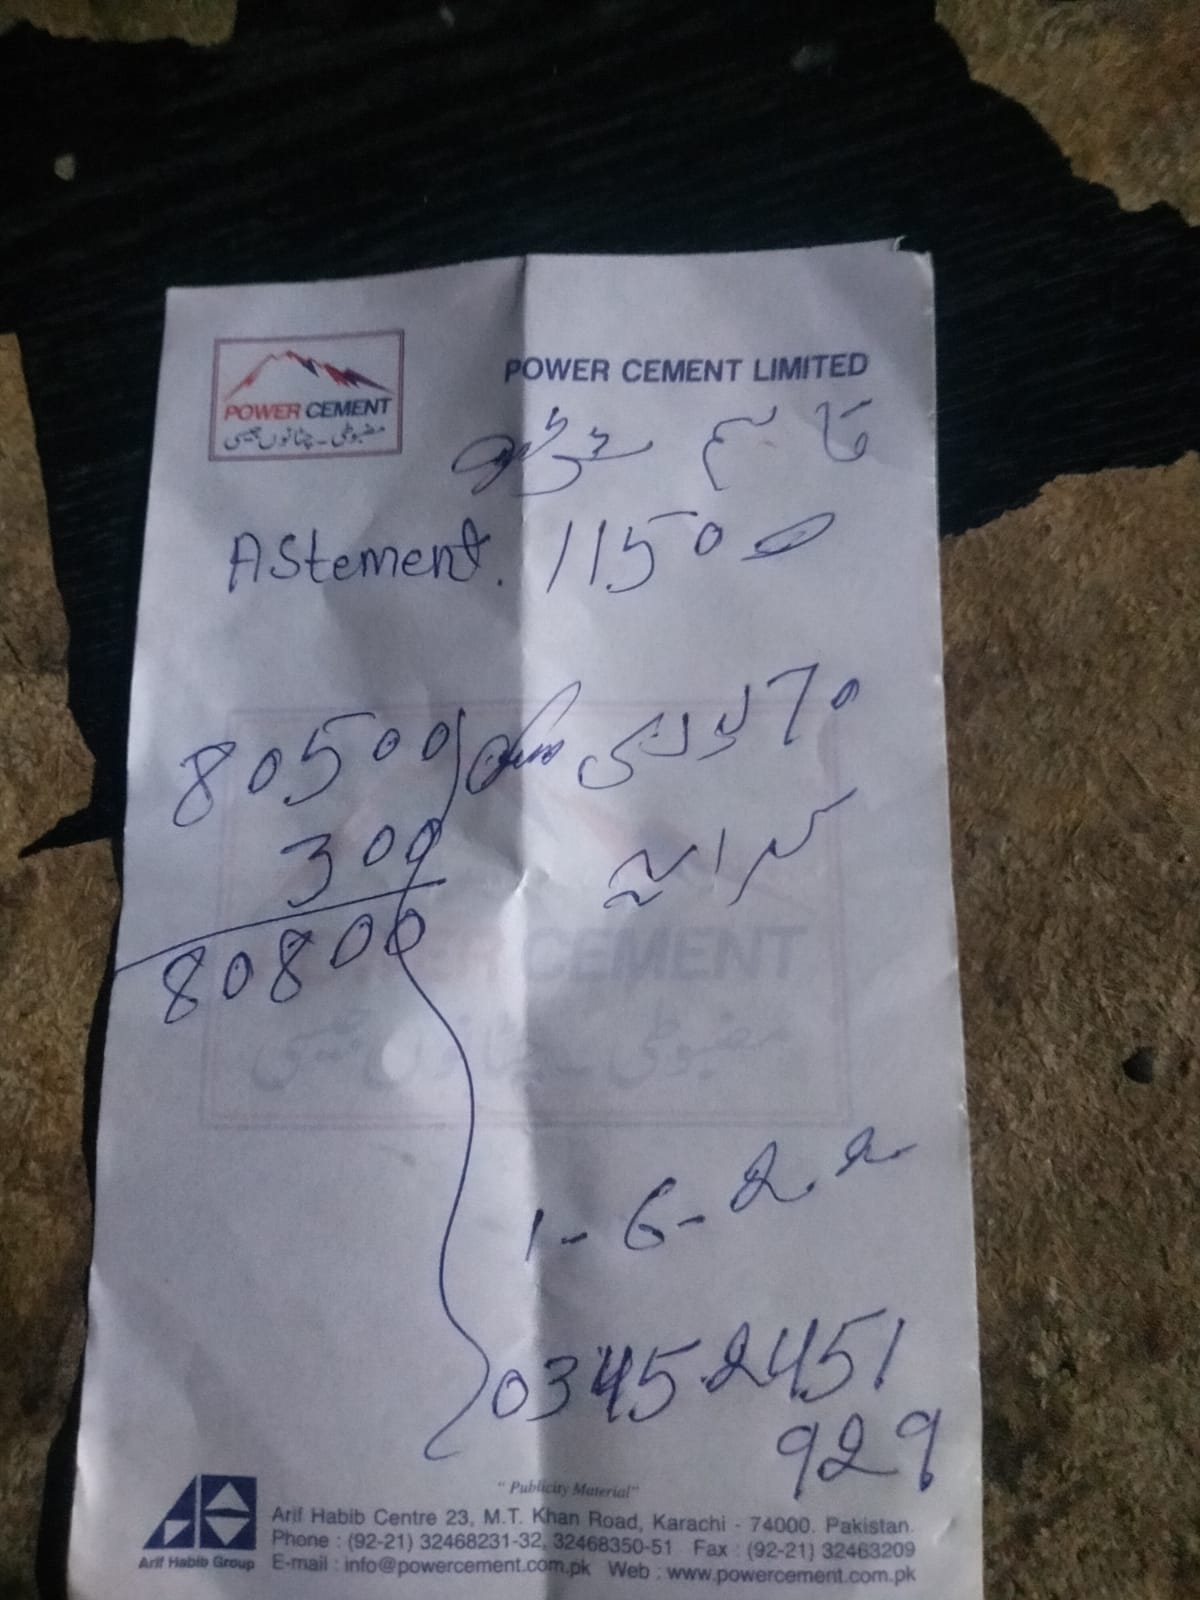 POWER CEMENT
مضبوطی - چٹانوں جیسی
POWER CEMENT LIMITED
قاسم
AStement. 11500
70 بوری 80500
کرایہ 300
80800
POWER CEMENT
مضبوطی - چٹانوں جیسی
1-6-22
03452451
929
"Publicity Material"
Arif Habib Group
Arif Habib Centre 23, M.T. Khan Road, Karachi - 74000. Pakistan.
Phone : (92-21) 32468231-32, 32468350-51 Fax : (92-21) 32463209
E-mail : info@powercement.com.pk Web : www.powercement.com.pk